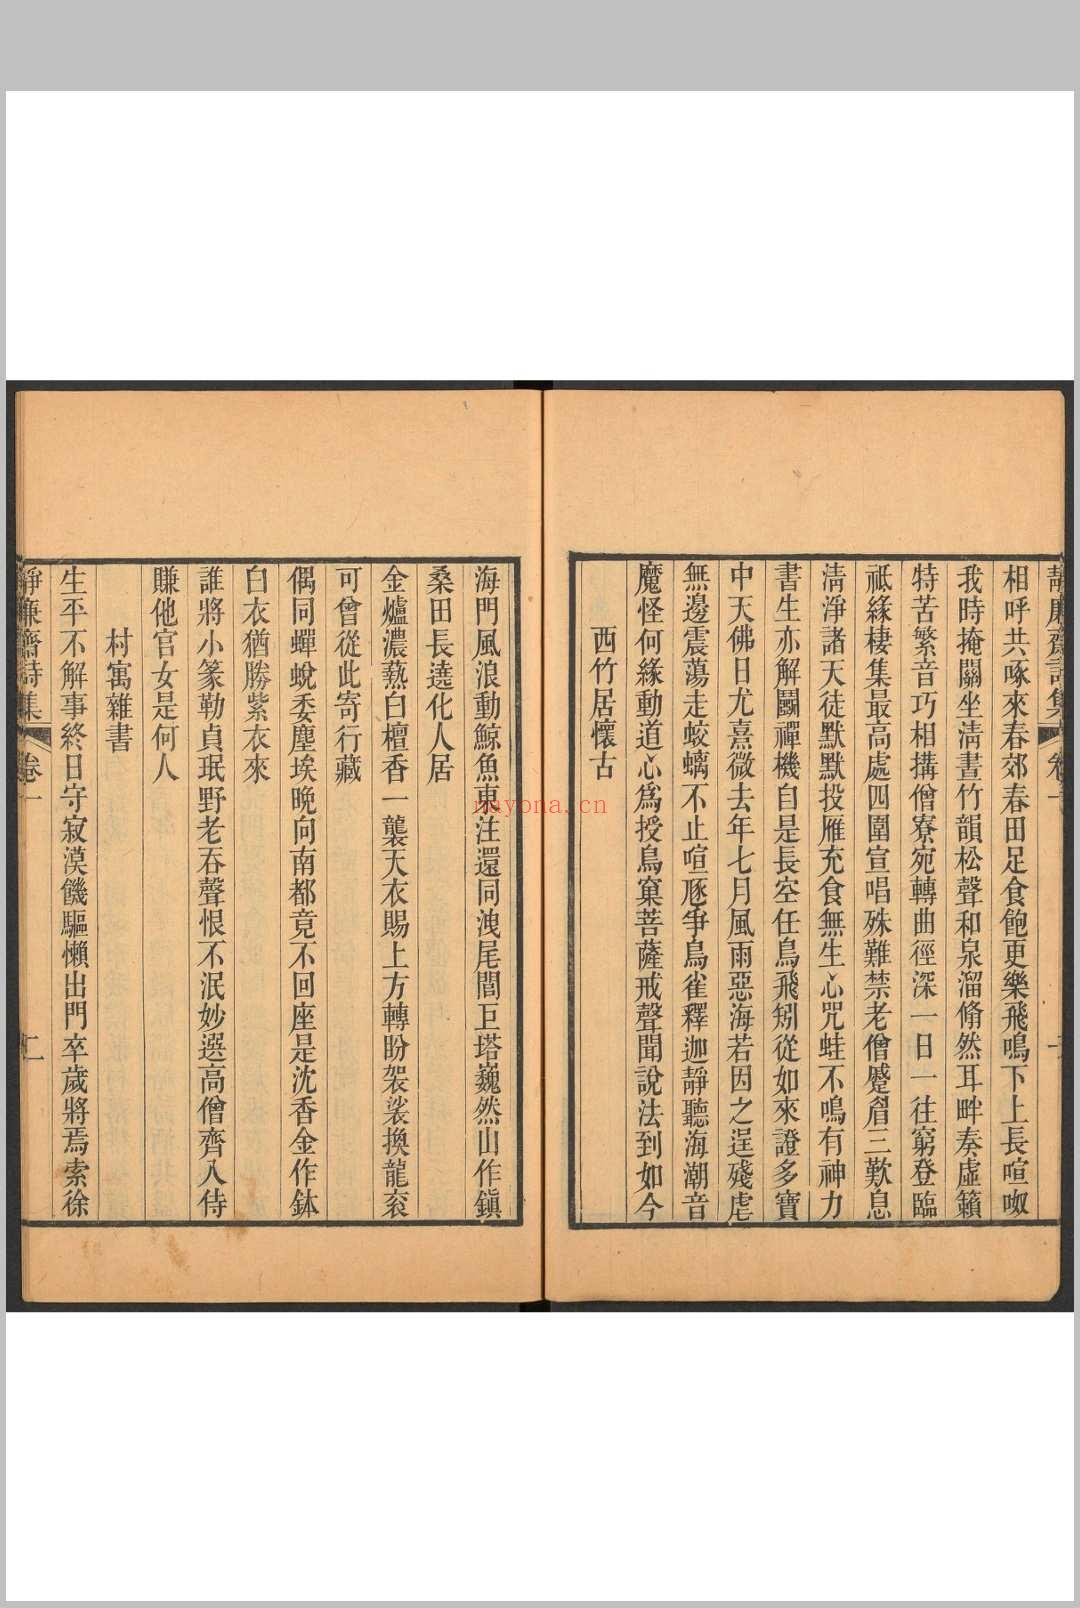 靜廉齋詩集 卷一
相呼共啄來春郊春田足食飽更樂飛鳴下上長喧呶
我時掩關坐清晝竹韻松聲和泉溜翛然耳畔奏虛籟
特苦繁音巧相搆僧寮宛轉曲徑深一日一往窮登臨
祗緣棲集最高處四圍宣唱殊難禁老僧蹙眉三歎息
清淨諸天徒默默投雁充食無生心咒蛙不鳴有神力
書生亦解鬭禪機自是長空任鳥飛矧從如來證多寶
中天佛日尤熹微去年七月風雨惡海若因之逞殘虐
無邊震蕩走蛟螭不止喧豗爭鳥雀釋迦靜聽海潮音
魔怪何緣動道心爲授鳥窠菩薩戒聲聞說法到如今
西竹居懷古
海門風浪動鯨魚東注還同洩尾閭巨塔巍然山作鎭
桑田長遶化人居
金爐濃爇白檀香一襲天衣賜上方轉盼袈裟換龍衮
可曾從此寄行藏
偶同蟬蛻委塵埃晩向南都竟不回座是沈香金作鉢
白衣猶勝紫衣來
誰將小篆勒貞珉野老吞聲恨不泯妙選高僧齊入侍
賺他官女是何人
村寓雜書
生平不解事終日守寂漠饑驅懶出門卒歲將焉索徐
靜廉齋詩集 卷一 二
nayona.cn